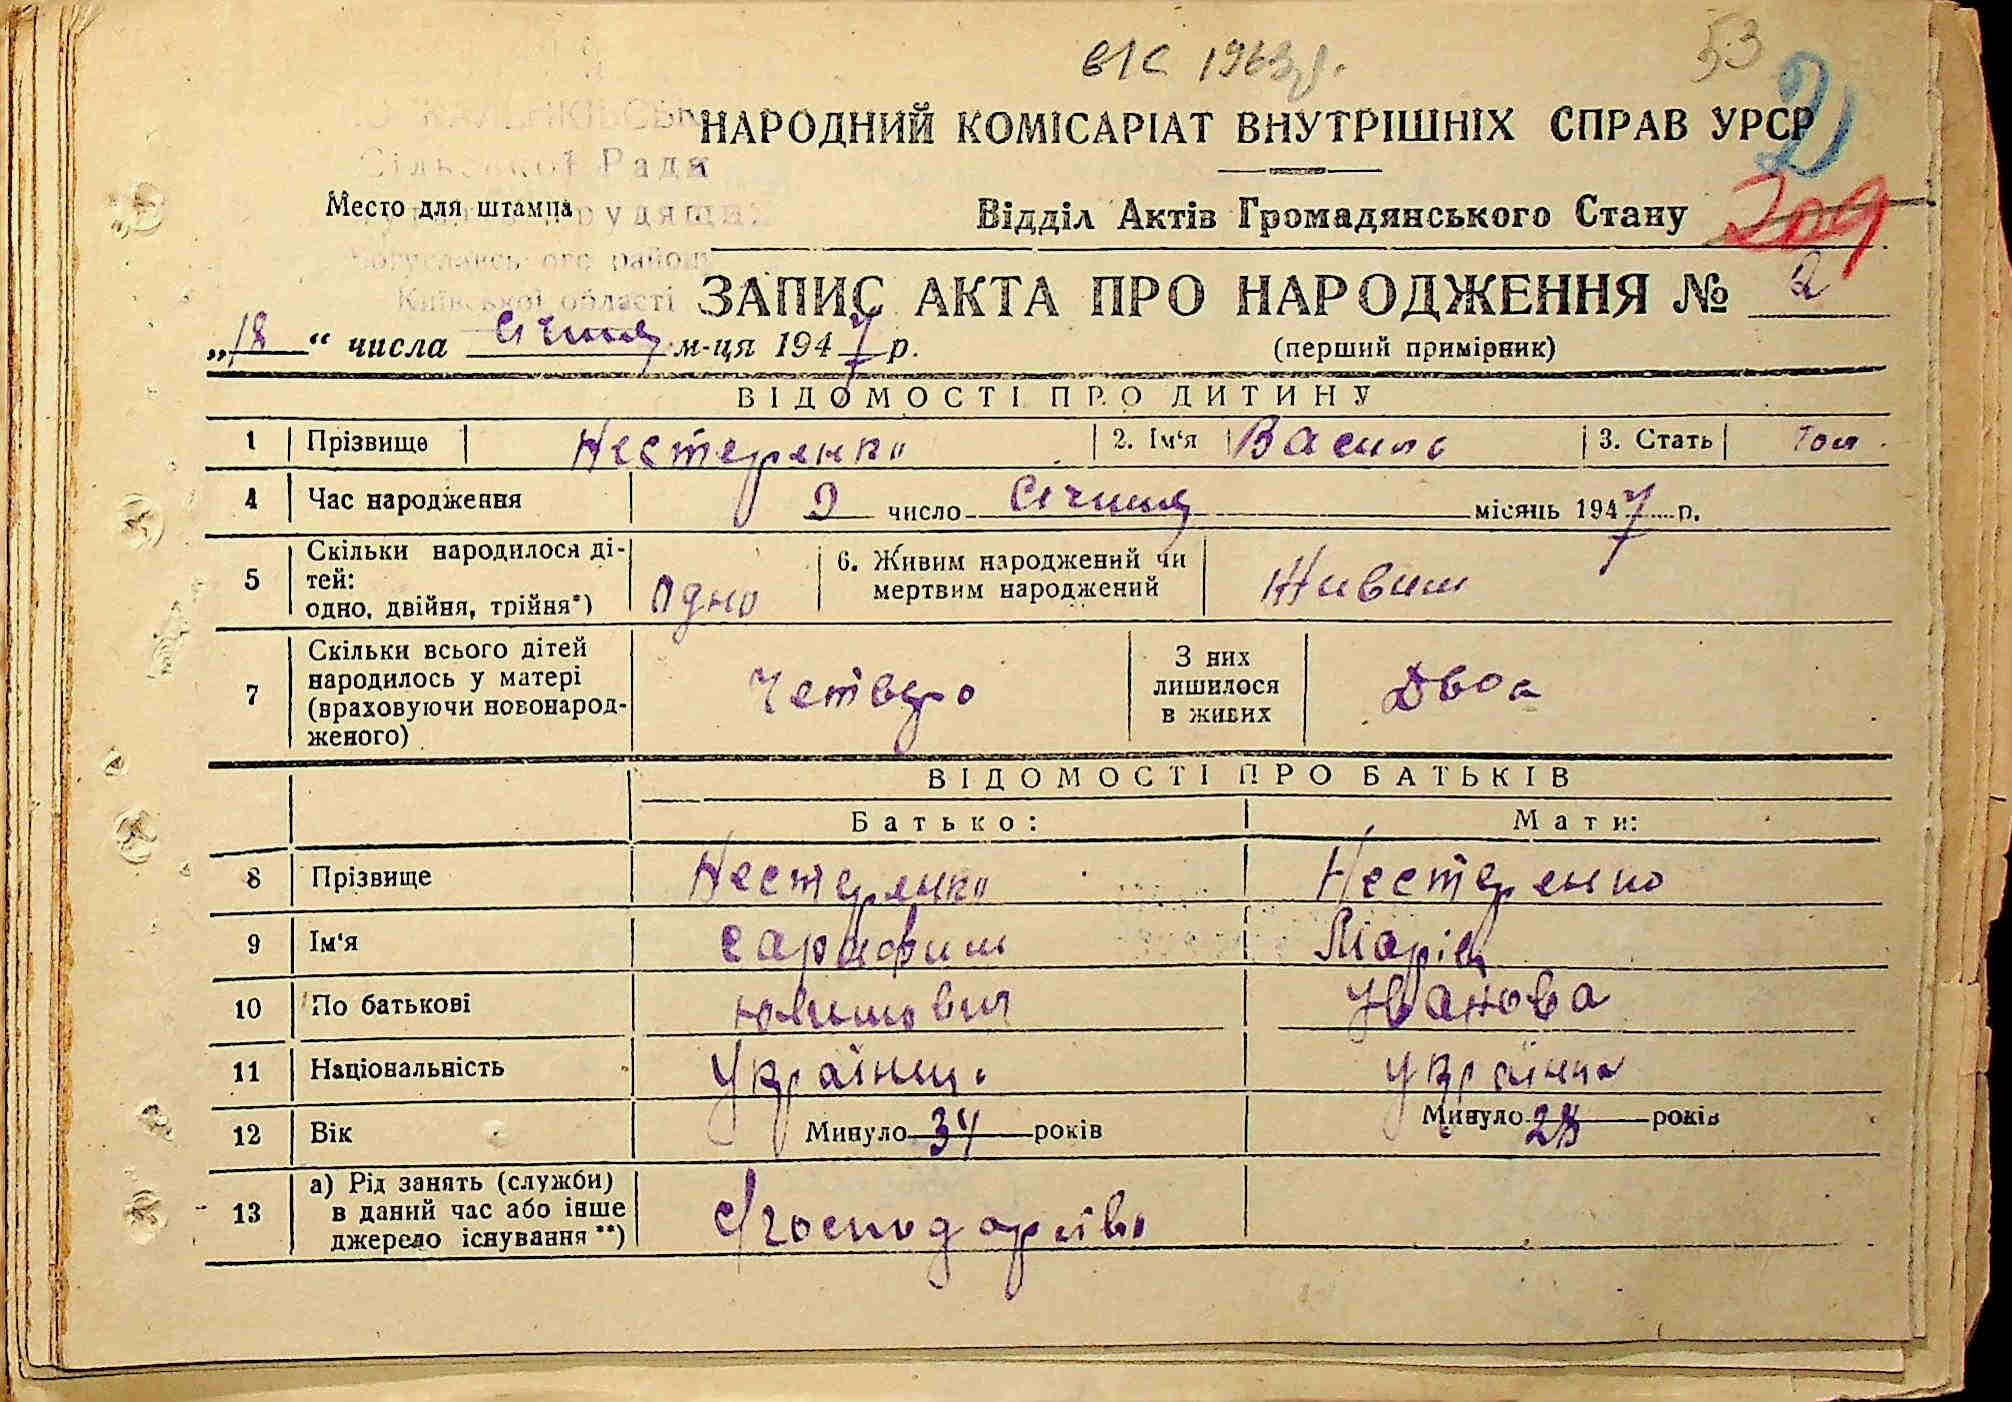 в/с 1963р.
53
2
НАРОДНИЙ КОМІСАРІАТ ВНУТРІШНІХ СПРАВ УРСР
Сільської Ради
Место для штампа
Відділ Актів Громадянського Стану
209
Богуславського району
Київської області
ЗАПИС АКТА ПРО НАРОДЖЕННЯ № 2
„18“ числа січня м-ця 1947 р.
(перший примірник)
ВІДОМОСТІ ПРО ДИТИНУ
1 Прізвище Нестеренко 2. Ім‘я Василь 3. Стать чол.
4 Час народження 2 число січня місяць 1947 р.
5 Скільки народилося ді-
тей:
одно, двійня, трійня*) одно
6. Живим народжений чи
мертвим народжений Живим
7 Скільки всього дітей
народилось у матері
(враховуючи новонарод-
женого) Четверо
З них
лишилося
в живих Двоє
ВІДОМОСТІ ПРО БАТЬКІВ
Батько: Мати:
8 Прізвище Нестеренко Нестеренко
9 Ім‘я Сарафим Марія
10 По батькові Юхимович Иванова
11 Національність Українец. українка
12 Вік Минуло 34 років Минуло 28 років
13 а) Рід занять (служби)
в даний час або інше
джерело існування **) с/господарство